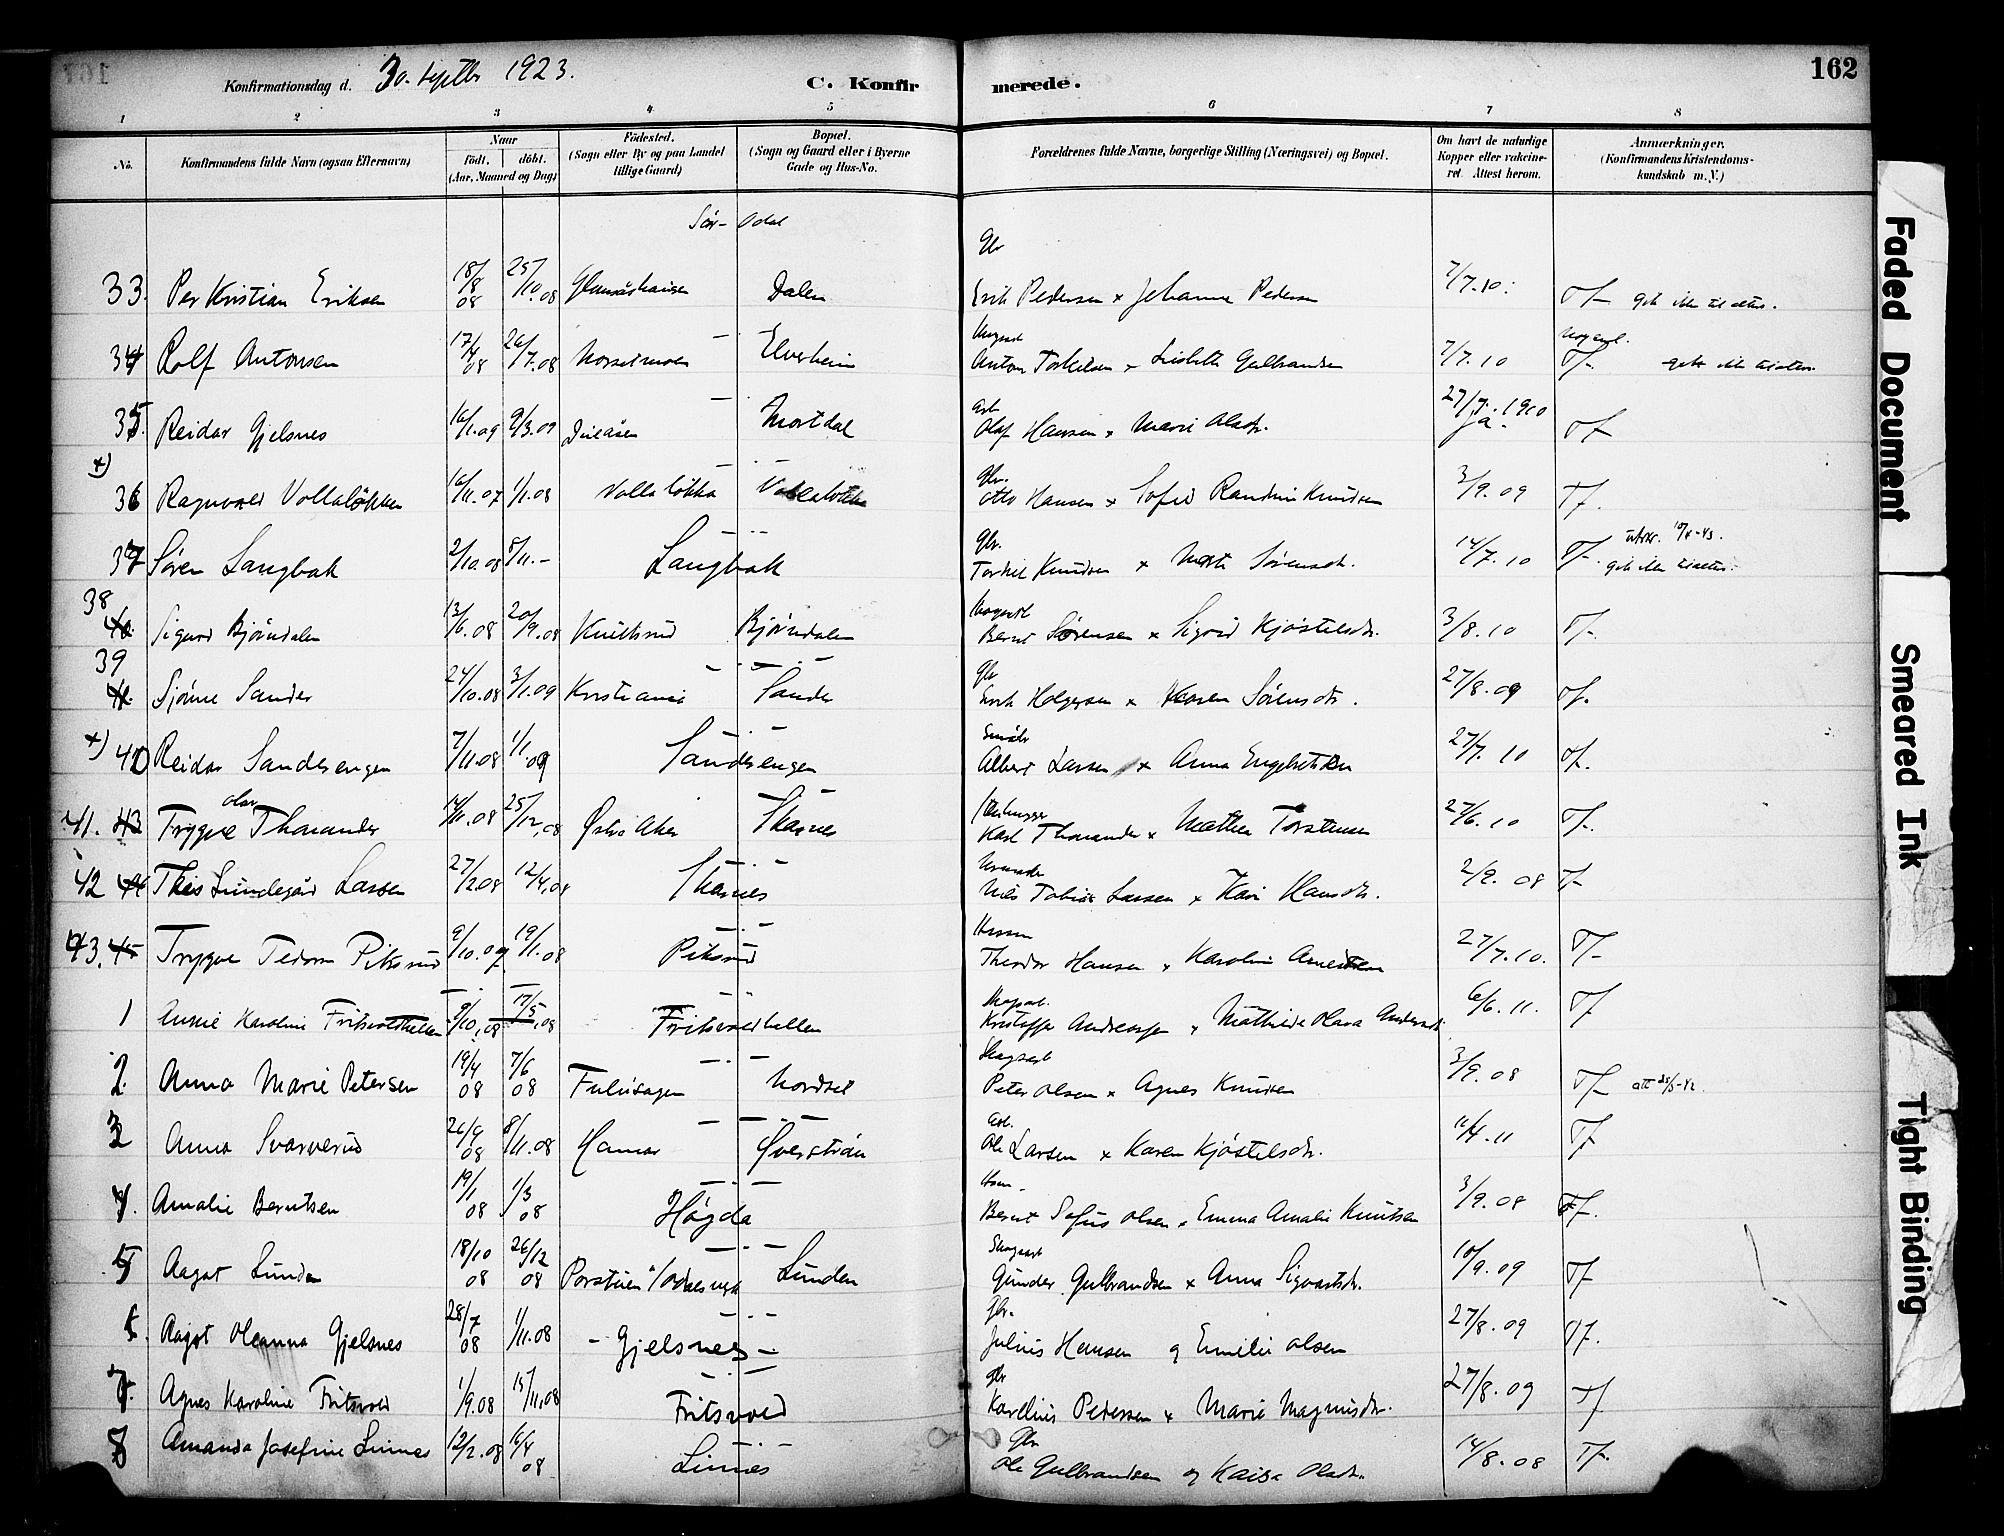 Konfirmationsdag d. 30. septbr 1923.
C. Konfirmerede.
162
1 2 3 4 5 6 7 8
No.
Konfirmandens fulde Navn (ogsaa Efternavn)
Naar
födt. döbt.
(Aar, Maaned og Dag)
Födested.
(Sogn eller By og paa Landet
tillige Gaard)
Bopæl.
(Sogn og Gaard eller i Byerne
Gade og Hus-No.
Forældrenes fulde Navne, borgerlige Stilling (Næringsvei) og Bopæl.
Om havt de naturlige
Kopper eller vakcine-
ret. Attest herom.
Anmærkninger.
(Konfirmandens Kristendoms-
kundskab m. V.)
Sør- Odal
Gbr
33. Per Kristian Eriksen 18/8 08 25/10.08 Dalen Erik Pedersen x Johanne Pedersen 7/7.10. T/- gik ikke til alters.
34 Rolf Antonsen 17/4 08 26/7.08 Norsetmoen Elverheim Anton Torkelsen x Lisbeth Gulbrandsen 7/7.10 T/- gik ikke til alters.
35. Reidar Gjelsnes 16/1.09 9/3.09 Mortdal Olaf Hansen x Marie Olsdtr. 27/7.1910 ja. T/-
x)
36 Ragnvald Vollaløkken 16/11.07 1/1.08 Vollaløkka Vollaløkka
Gbr.
Otto Hansen x Sofie Randine Knudsen 3/9.09 T/.
37 Søren Langbak 2/10.08 8/11.- Langbak
Gbr.
Torkel Knudsen x Marte Sørensdtr. 14/7.10 T/- utskr. 19/4-43. gik ikke til alters.
38 40. Sigurd Bjørndalen 13/6.08 20/9.08 Knutsrud Bjørndalen Bernt Sørensen x Sigrid Kjøstelsdtr. 3/8.10 T/-
39 41. Sjønne Sander 24/10.08 3/1.09 Kristiania Sander
Gbr
Erik Holgersen x Karen Sørensdtr. 27/8.09 T/.
x) 40 Reidar Sandersengen 7/11.08 1/1.09 Sandersengen
Albert Larsen x Anna Engebretsen 27/7.10 T/.
41. 43 Trygve Olav Thorander 14/11.08 25/12.08 Østre Aker Skarnes
Karl Thorander x Mathea Torstensen 27/6.10 T/-.
42 44 This Lundegård Larsen 27/2.08 12/4.08 Skarnes
Nils Tobias Larsen x Kari Hansdtr. 2/9.08 T/-
43. 45 Trygve Tedor Piksrud 9/10.07 19/1.08 Piksrud
Theodor Hansen x Karoline Arnesen 27/7.10. T/-
1 Annie Karoline Fritsvoldhellen 9/10.08 17/5.08 Fritsvoldhellen
Kristoffer Andreassen x Mathilde Olava Andersdtr. 6/6.11. T/
2. Anna Marie Petersen 19/4 08 7/6 08 Fulusagen Nordset
Skogsarb
Peter Olsen x Agnes Knudsen 3/9.08 T/- att 28/5-42.
3 Anna Svarverud 26/9 08 8/11.08 Hamar Øverstrøm
Arb.
Ole Larsen x Karen Kjøstelsdtr. 11/4.11 T/
4. Amalie Berntsen 19/1 08 1/3 08 Høgda
Bernt Sofus Olsen x Emma Amalie Knutsen 3/9.08 T/.
5 Aagot Lunden 18/10 08 26/12 08 Lunden
Skogsarb
Gunder Gulbrandsen x Anna Sigvartsdtr. 10/9.09 T/-
6. Aagot Oleanna Gjelsnes 28/7 08 1/11.08 - Gjelsnes -
Gbr.
Julius Hansen og Emilie Olsen 27/8.09 T/.
7. Agnes Karoline Fritsvold 1/9.08 15/11.08 Fritsvold
Gbr
Karelius Pedersen x Marie Magnusdtr. 27/8.09 T/
8 Amanda Josefine Linnes 12/2.08 16/4 08 Linnes
Gbr
Ole Gulbrandsen og Kaisa Olsdtr. 14/8.08 T/-.
Faded Document
Smeared Ink
Tight Binding